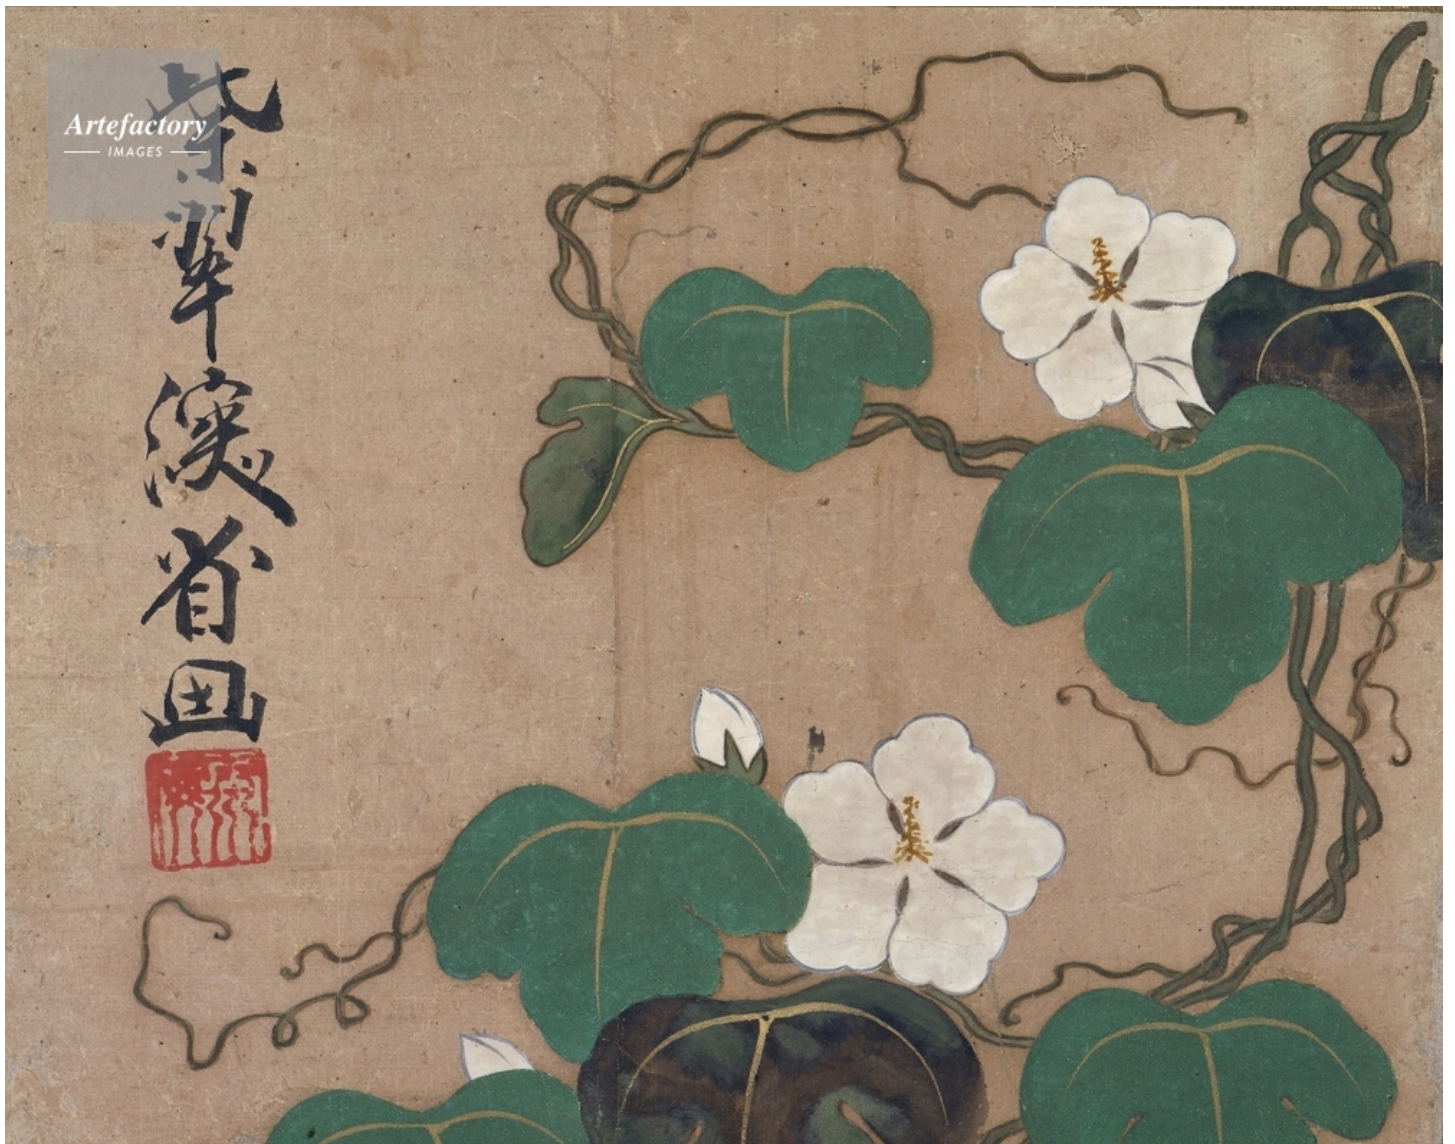 Artefactory
IMAGES
紫翠深省画